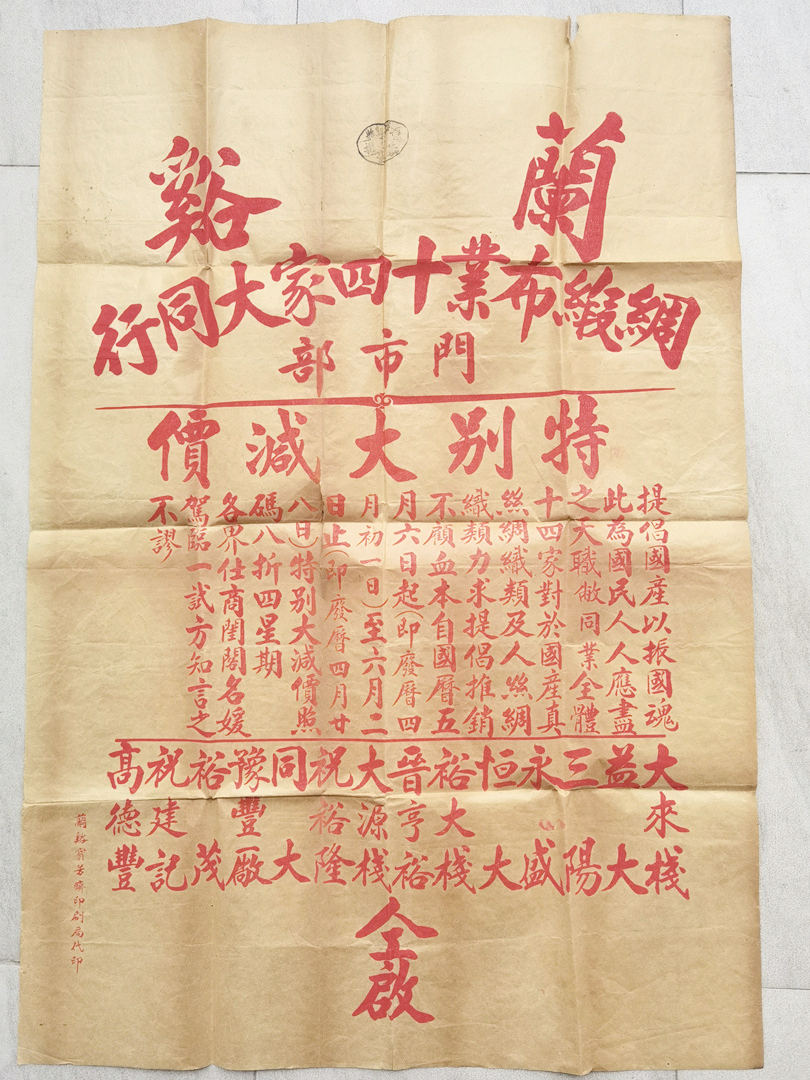 蘭谿
綢緞布業十四家大同行
門市部
特別大減價
提倡國產以振國魂
此為國民人人應盡
之天職敝同業全體
十四家對於國產真
絲綢織類及人絲綢
織類力求提倡推銷
不顧血本自國曆五
月六日起(即廢曆四
月初一日)至六月二
日止(即廢曆四月廿
八日)特別大減價照
碼八折四星期
各界仕商閨閣名媛
駕臨一試方知言之
不謬
大來棧
益大
三陽
永盛
恒大
裕大棧
晉亨裕
大源棧
祝裕隆
同大
豫豐廠
裕茂
祝建記
高德豐
仝啟
蘭谿 印刷局代印